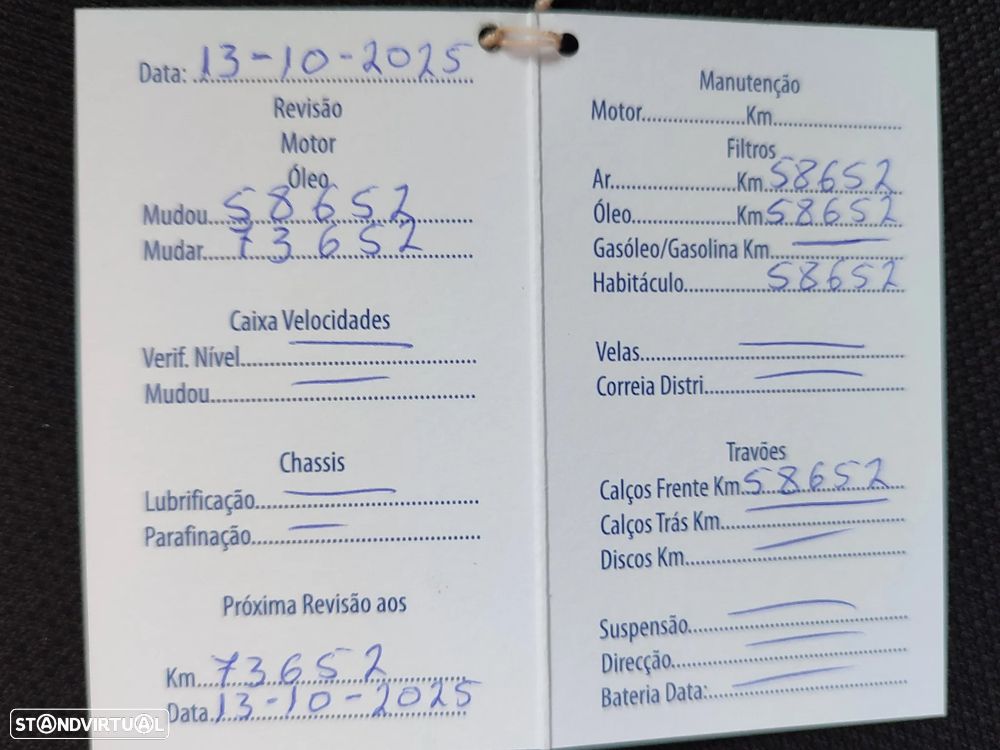 Data: 13-10-2025
Revisão
Motor
Óleo
Mudou 58652
Mudar 73652
Caixa Velocidades
Verif. Nível
Mudou
Chassis
Lubrificação
Parafinação
Próxima Revisão aos
Km 73652
Data 13-10-2025
Manutenção
Motor Km
Filtros
Ar Km 58652
Óleo Km 58652
Gasóleo/Gasolina Km
Habitáculo 58652
Velas
Correia Distri
Travões
Calços Frente Km 58652
Calços Trás Km
Discos Km
Suspensão
Direcção
Bateria Data:
STANDVIRTUAL